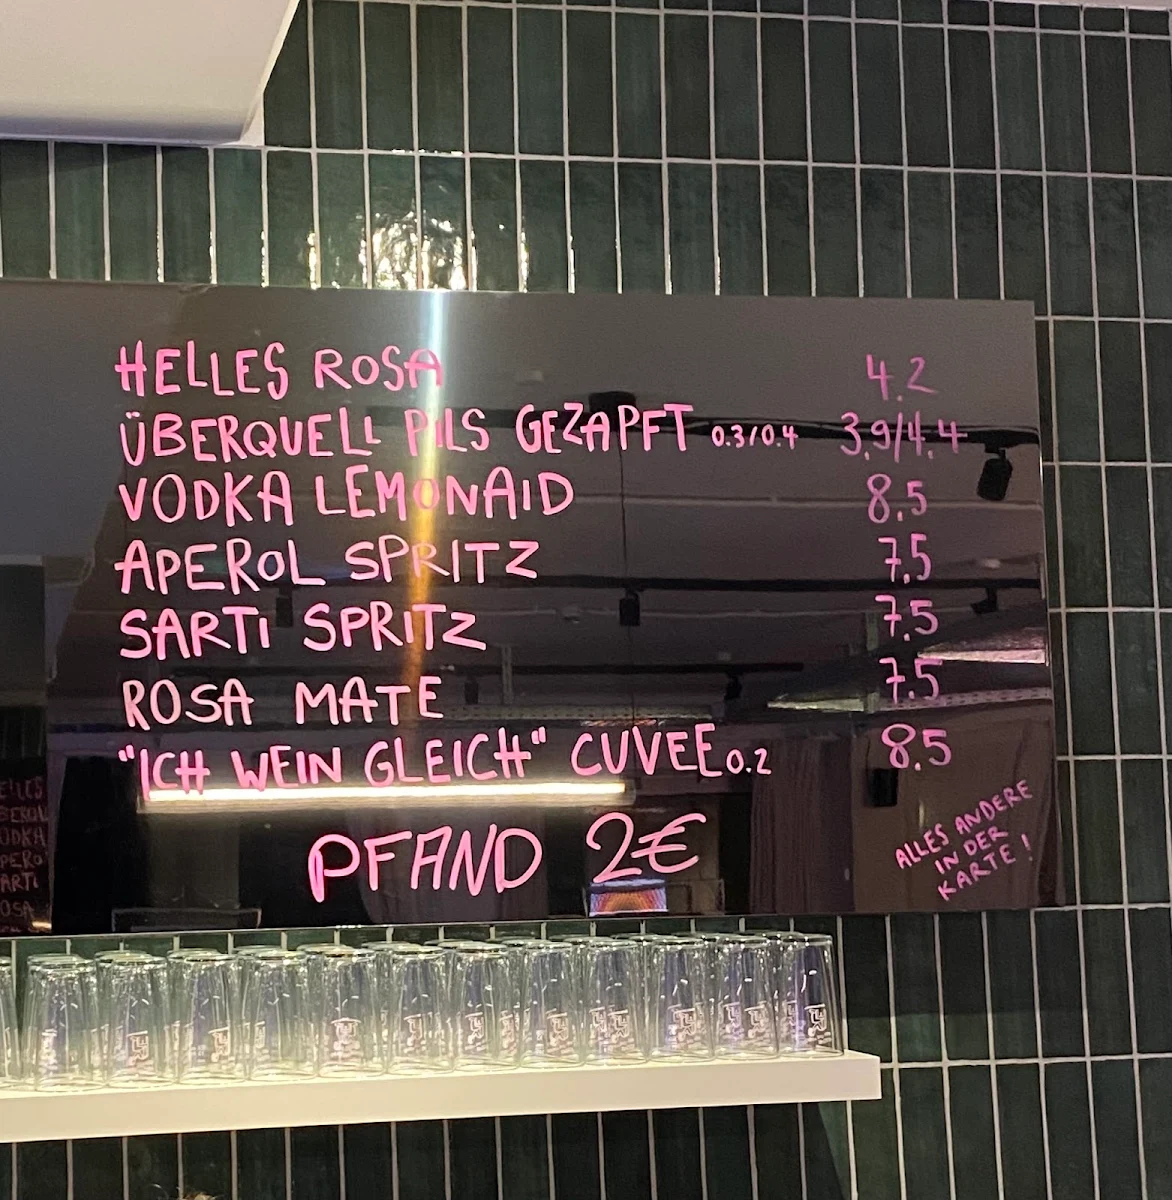 HELLES ROSA 4.2
ÜBERQUELL PILS GEZAPFT 0.3/0.4 3.9/4.4
VODKA LEMONAID 8.5
APEROL SPRITZ 7.5
SARTI SPRITZ 7.5
ROSA MATE 7.5
"ICH WEIN GLEICH" CUVEE 0.2 8.5
PFAND 2€
ALLES ANDERE
IN DER
KARTE!